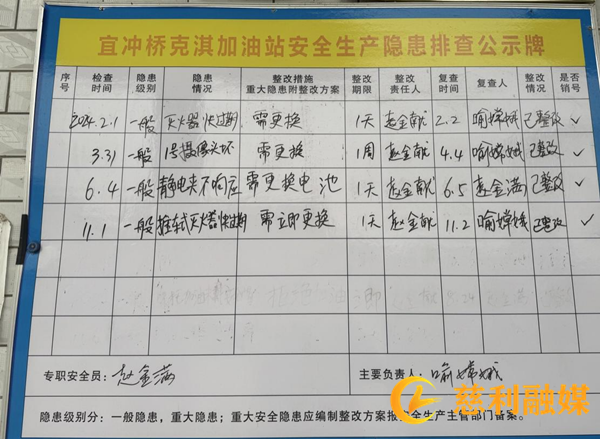 宜冲桥克淇加油站安全生产隐患排查公示牌
序号 检查时间 隐患级别 隐患情况 整改措施 重大隐患附整改方案 整改期限 整改责任人 复查时间 复查人 整改情况 是否销号
2024.2.1 一般 灭火器快过期 需更换 1天 赵金献 2.2 喻嫦娥 已整改 ✓
3.31 一般 1号摄像头坏 需更换 1周 赵金献 4.4 喻嫦娥 已整改 ✓
6.4 一般 静电夹不响应 需更换电池 1天 赵金献 6.5 赵金满 已整改 ✓
11.1 一般 推车式灭火器快过期 需立即更换 1天 赵金献 11.2 喻嫦娥 已整改 ✓
专职安全员：赵金满 主要负责人：喻嫦娥
隐患级别分：一般隐患，重大隐患；重大安全隐患应编制整改方案报安全生产主管部门备案。
慈利融媒